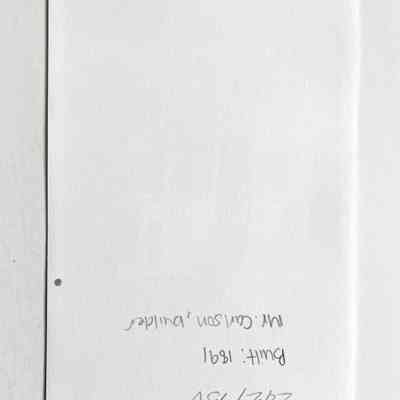 Built: 1891
Mr. Carlson, builder